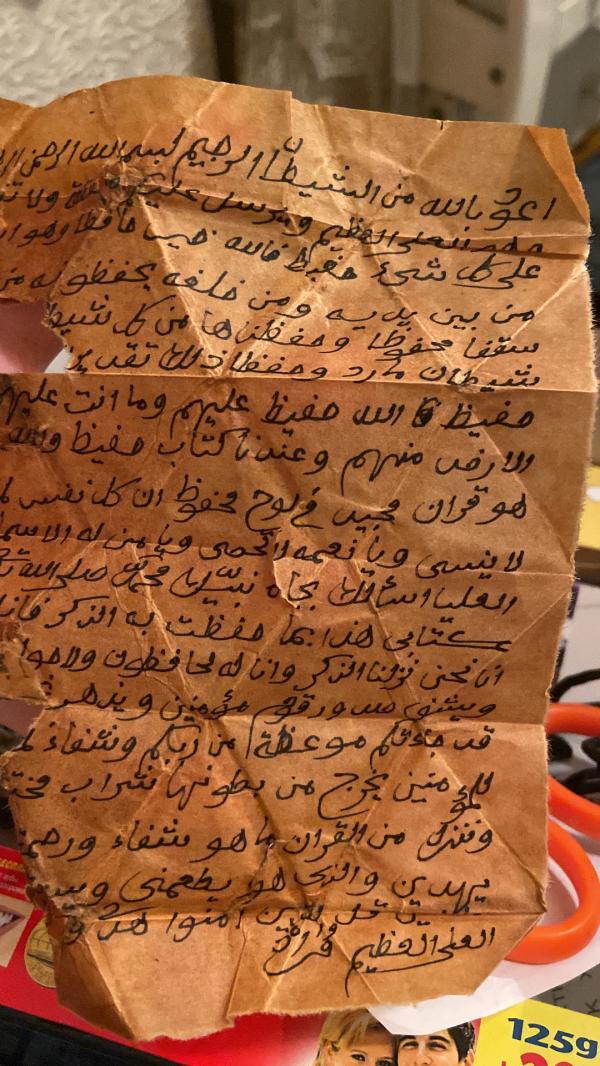 اعوذ بالله من الشيطان الرجيم بسم الله الرحمن
وهو العلي العظيم ويرسل عليكم ولا
على كل شيء حفيظ فالله خير حافظا وهو
من بين يديه ومن خلفه يحفظونه من
سقفا محفوظا وحفظناها من كل شيط
شيطان مارد وحفظا ذلك تقدير
حفيظ الله حفيظ عليهم وما انت عليهم
الارض منهم وعندنا كتاب حفيظ والله
هو قران مجيد في لوح محفوظ ان كل نفس
لا ينسى ويا نعمه لا تحصى ويا من له الاسما
العليا اسألك بجاه نبيك محمد صلى الله
كتابي هذا بما حفظت به الذكر فانك
انا نحن نزلنا الذكر وانا له لحافظون ولا حول
ويشف صدور قوم مؤمنين ويذهب
قد جاءتكم موعظة من ربكم وشفاء
للمؤمنين يخرج من بطونها شراب مخت
وننزل من القران ما هو شفاء ورحمة
يهدين والذي هو يطعمني ويس
قل للذين امنوا هدى و
العلي العظيم
125g